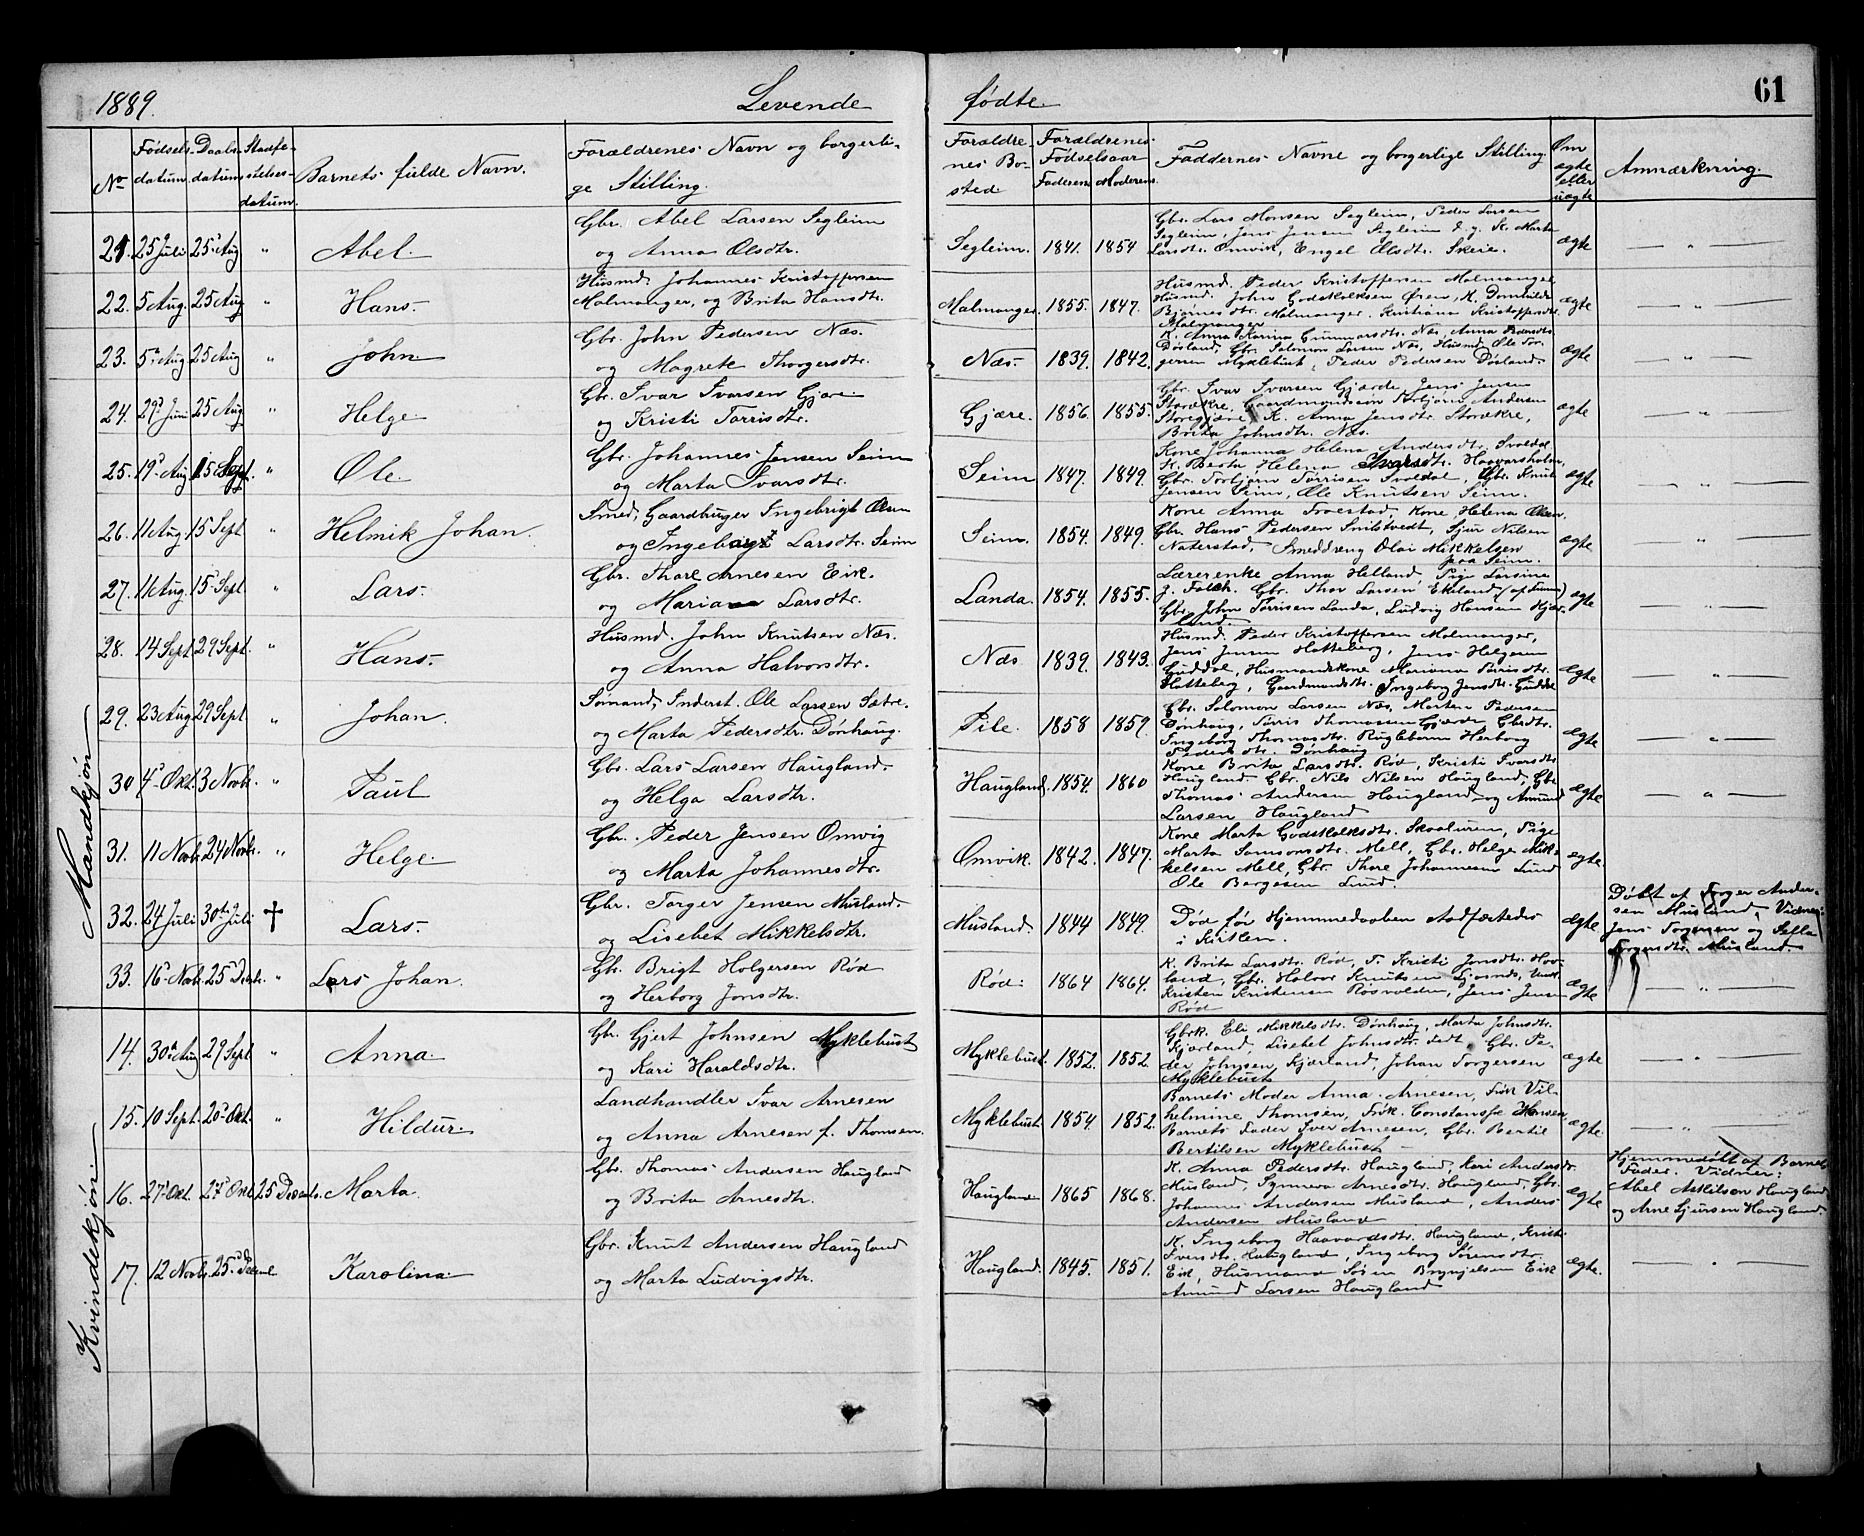 1889.
Levende
fødte.
61
No
Fødsels-
datum
Daabs-
datum
Stadfæ-
stelses-
datum.
Barnets fulde Navn.
Forældrenes Navn og borgerli-
ge Stilling.
Forældre-
nes Bo-
sted
Forældrenes
Fødselsaar
Faderens Moderens.
Faddernes Navne og borgerlige Stilling.
Om
ægte
eller
uægte
Anmærkning.
Mandkjøn
21. 25 Juli 25 Aug " Abel.
Gbr. Abel Larsen Segleim
og Anna Olsdtr.
Segleim. 1841. 1854
Gbr. Lars Monsen Segleim, Peder Larsen
Segleim, Jens Jensen Segleim d. y. K. Marta
Larsdtr. Omvik, Engel Olsdtr. Skeie.
ægte — " —
22. 5 Aug. 25 Aug " Hans.
Husmd. Johannes Kristoffersen
Malmanger, og Brita Hansdtr.
Malmanger. 1855. 1847.
Husmd. Peder Kristoffersen Malmanger
Husmd. John Godskalksen Øren, K. Domhilda
Bjørnesdtr. Malmanger. Kristiana Kristoffersdtr.
Malmanger
ægte "
23. 5 Aug 25 Aug " John
Gbr. John Pedersen Næs.
og Magrete Thorgersdtr.
Næs. 1839. 1842.
K. Anna Karina Gunnarsdtr. Næs, Anna Pedersdtr.
Døsland, Gbr. Salomon Larsen Næs, Husmd. Ole Tor-
gersen Myklebust, Peder Pedersen Døsland.
ægte — " —
24. 29 Juni 25 Aug " Helge.
Gbr. Ivar Ivarsen Gjære
og Kristi Torrisdtr.
Gjære. 1856. 1855.
Gbr. Ivar Ivarsen Gjærde, Jens Jensen
Storækre, Gaardmandssøn Torbjørn Andersen
Storegjære, K. Anna Jensdtr. Storækre,
Brita Johnsdtr. Næs.
ægte — " —
25. 19 Aug 15 Sept. " Ole.
Gbr. Johannes Jensen Seim
og Marta Ivarsdtr.
Seim 1847. 1849.
Kone Johanna Helena Andersdtr. Svoldal
K. Berta Helena Ivarsdtr. Haavarsholm,
Gbr. Torbjørn Torrisen Svoldal, Gbr. Knut
Jensen Seim, Ole Knutsen Seim.
ægte — " —
26. 11 Aug 15 Sept " Helmik Johan.
Smed, Gaardbruger Ingebrigt Olsen
og Ingeborg Larsdtr. Seim
Seim. 1854. 1849.
Kone Anna Froestad, Kone Helena Olsen
Gbr. Hans Pedersen Snilstvedt, Sjur Nilsen
Naterstad, Smeddreng Olai Mikkelsen
paa Seim.
ægte — " —
27. 11 Aug. 15 Sept " Lars.
Gbr. Thore Arnesen Eik.
og Mariana Larsdtr.
Landa. 1854. 1855.
Lærerenke Anna Helland, Pige Larsine
J. Falch. Gbr. Thor Larsen Ekeland
Gbr. John Torrisen Landa, Ludvig Hansen Kjær-
land.
ægte — " —
28. 14 Sept 29 Sept. " Hans.
Husmd. John Knutsen Næs.
og Anna Halvorsdtr.
Næs 1839. 1843.
Husmd. Peder Kristoffersen Malmanger,
Jens Jensen Hatteberg, Jens Helgesen
Guddal, Husmandskone Mariana Torrisdtr.
Hatteberg, Gaardmandsdtr. Ingeborg Jensdtr. Guddal
ægte — " —
29. 23 Aug 29 Sept " Johan.
Sømand, Inderst. Ole Larsen Sætre.
og Marta Pedersdtr. Dønhaug.
Pile. 1858 1859.
Gbr. Salomon Larsen Næs, Morten Pedersen
Dønhaug, Torris Thomassen Gjærde, Gbrdtr.
Ingeborg Thomasdtr. Ruglebarm Herborg
Pedersdtr. Dønhaug
ægte — " —
30 4 Okt. 3 Novb. " Paul
Gbr. Lars Larsen Haugland.
og Helga Larsdtr.
Haugland. 1854. 1860
Kone Brita Larsdtr. Rød, Kristi Ivarsdtr.
Haugland, Gbr. Nils Nilsen Haugland, Gbr.
Thomas Andersen Haugland og Amund
Larsen Haugland
ægte — " —
31. 11 Novb. 24 Novb. " Helge.
Gbr. Peder Jensen Omvig
og Marta Johannesdtr.
Omvik. 1842. 1847.
Kone Marta Godskalksdtr. Skaaluren, Pige
Marta Samsonsdtr. Mell, Gbr. Helge Mik-
kelsen Mell, Gbr. Thore Johannesen Lund
Ole Børgesen Lund.
ægte
32. 24 Juli 30te Juli † Lars.
Gbr. Torger Jensen Musland.
og Lisebet Mikkelsdtr.
Musland. 1844 1849.
Død før Hjemmedaaben stadfæstedes
i Kirken.
ægte
Døbt af Torger Ander-
sen Musland, Vidner:
Jens Torgersen og Sella
Torgersdtr. Musland.
33. 16 Novb. 25 Decbr. " Lars Johan.
Gbr. Brigt Holgersen Rød
og Herborg Jonsdtr.
Rød. 1864 1864.
K. Brita Larsdtr. Rød, P. Kristi Jonsdtr. Hov-
land, Gbr. Halvor Knutsen Ljosnes, Unk.
Kristen Kristensen Rosvolden, Jens Jensen
Rød
ægte — " —
Kvindekjøn
14. 30te Aug 29 Sept " Anna.
Gbr. Gjert Johnsen Myklebust
og Kari Haraldsdtr.
Myklebust. 1852. 1852.
Gbrk. Eli Mikkelsdtr. Dønhaug, Marta Johnsdtr.
Kjærland, Lisebet Johnsdtr. Tedt Gbr. Pe-
der Johnsen Kjærland, Johan Torgersen
Myklebust
ægte — " —
15. 10 Sept. 20 Okt. " Hildur.
Landhandler Ivar Arnesen
og Anna Arnesen f. Thomsen.
Myklebust 1854. 1852.
Barnets Moder Anna Arnesen, Frk. Vil-
helmine Thomsen, Frk. Constanse Hansen
Barnets Fader Iver Arnesen, Gbr. Bertil
Bertilsen Myklebust
ægte. — " —
16. 27 Okt. 27 Okt. 25 Decemb. Marta.
Gbr. Thomas Andersen Haugland
og Brita Arnesdtr.
Haugland 1865 1868.
K. Anna Pedersdtr. Haugland, Kari Andersdtr.
Musland, Synneva Arnesdtr. Haugland, Gbr.
Johannes Andersen Musland, Anders
Andersen Musland
ægte
Hjemmedøbt af Barnets
Fader. Vidner:
Abel Askilsen Haugland
og Arne Sjursen Haugland.
17. 12 Novb. 25 Decemb. Karolina.
Gbr. Knut Andersen Haugland
og Marta Ludvigsdtr.
Haugland. 1845. 1851.
K. Ingeborg Haavardsdtr. Haugland, Kristi
Iversdtr. Haugland, Ingeborg Sørensdtr.
Eik, Husmand Søren Brynjelsen Eik
Amund Larsen Haugland
ægte. — " —